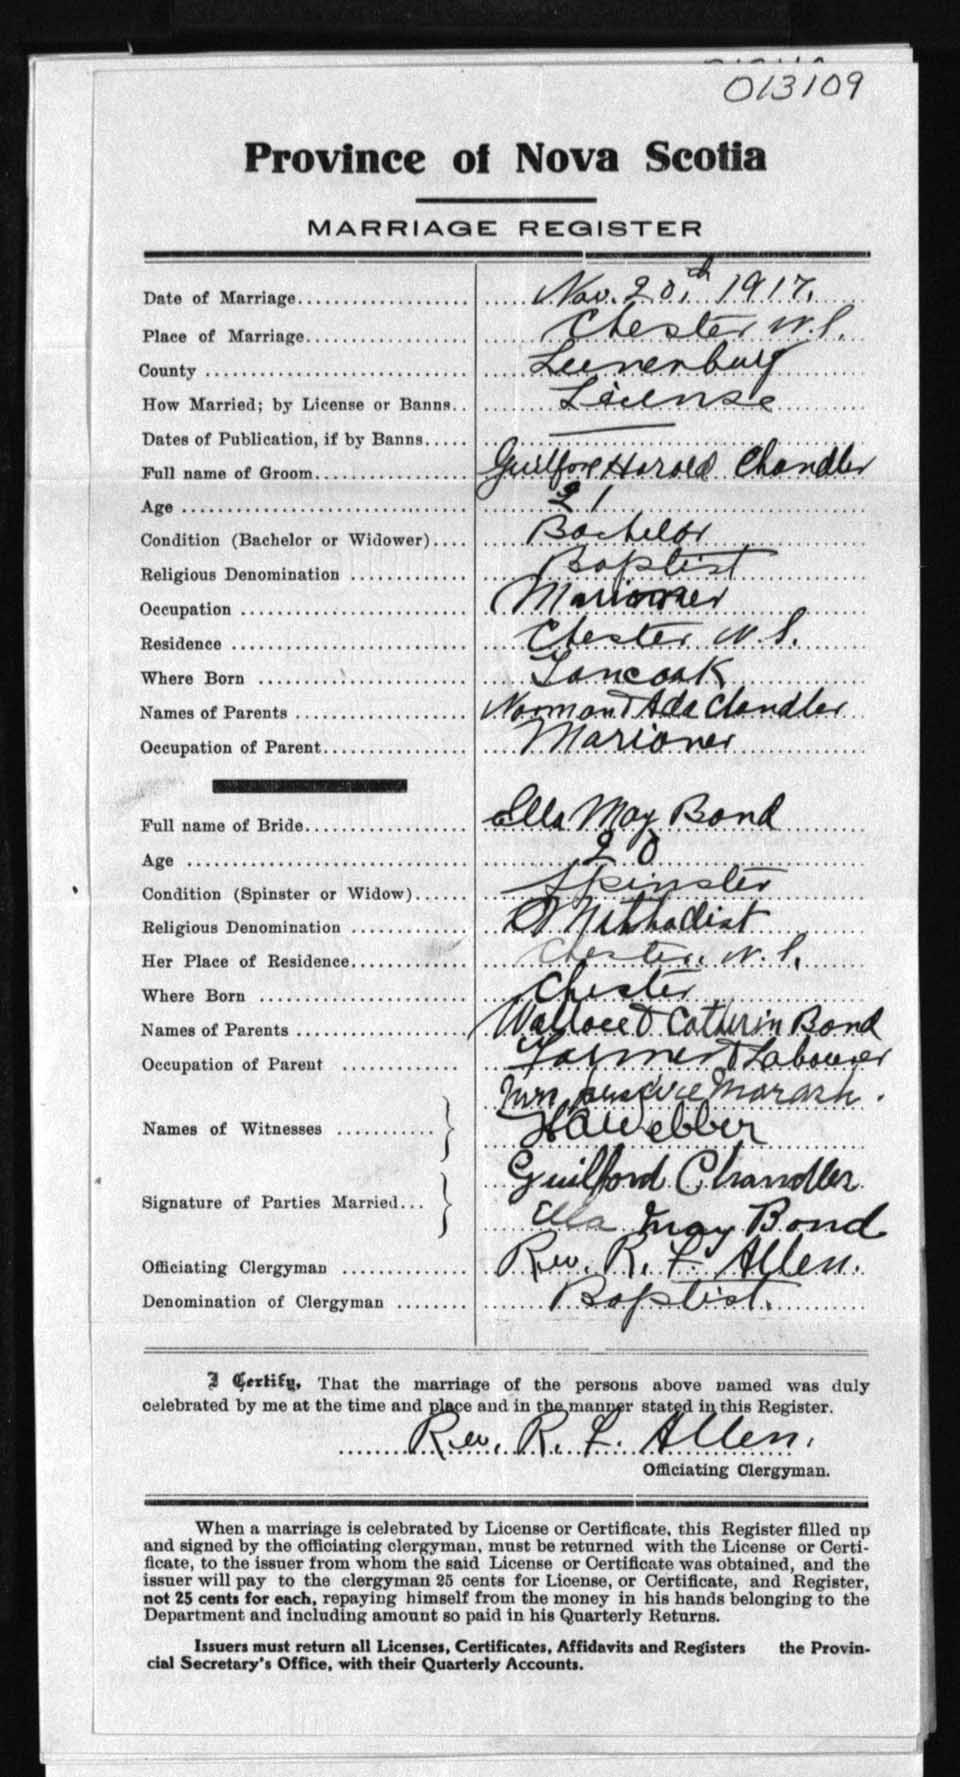 013109
Province of Nova Scotia
MARRIAGE REGISTER
Date of Marriage Nov. 20th 1917.
Place of Marriage Chester N.S.
County Lunenburg
How Married; by License or Banns License
Dates of Publication, if by Banns
Full name of Groom Harold Chandler
Age 21
Condition (Bachelor or Widower) Bachelor
Religious Denomination Baptist
Occupation
Residence Chester N.S.
Where Born Tancook
Names of Parents Norman & Ada Chandler
Occupation of Parent Marioner
Full name of Bride Ella May Bond
Age 20
Condition (Spinster or Widow) Spinster
Religious Denomination Methodist
Her Place of Residence Chester. N.S.
Where Born Chester
Names of Parents Wallace & Catherin Bond
Occupation of Parent Farmer & Labourer
Names of Witnesses
HA Webber
Guilford Chandler
Signature of Parties Married
Ella May Bond
Officiating Clergyman Rev. R. L. Allen.
Denomination of Clergyman Baptist.
I Certify, That the marriage of the persons above named was duly
celebrated by me at the time and place and in the manner stated in this Register.
Rev. R. L. Allen.
Officiating Clergyman.
When a marriage is celebrated by License or Certificate, this Register filled up
and signed by the officiating clergyman, must be returned with the License or Certi-
ficate, to the issuer from whom the said License or Certificate was obtained, and the
issuer will pay to the clergyman 25 cents for License, or Certificate, and Register,
not 25 cents for each, repaying himself from the money in his hands belonging to the
Department and including amount so paid in his Quarterly Returns.
Issuers must return all Licenses, Certificates, Affidavits and Registers the Provin-
cial Secretary's Office, with their Quarterly Accounts.